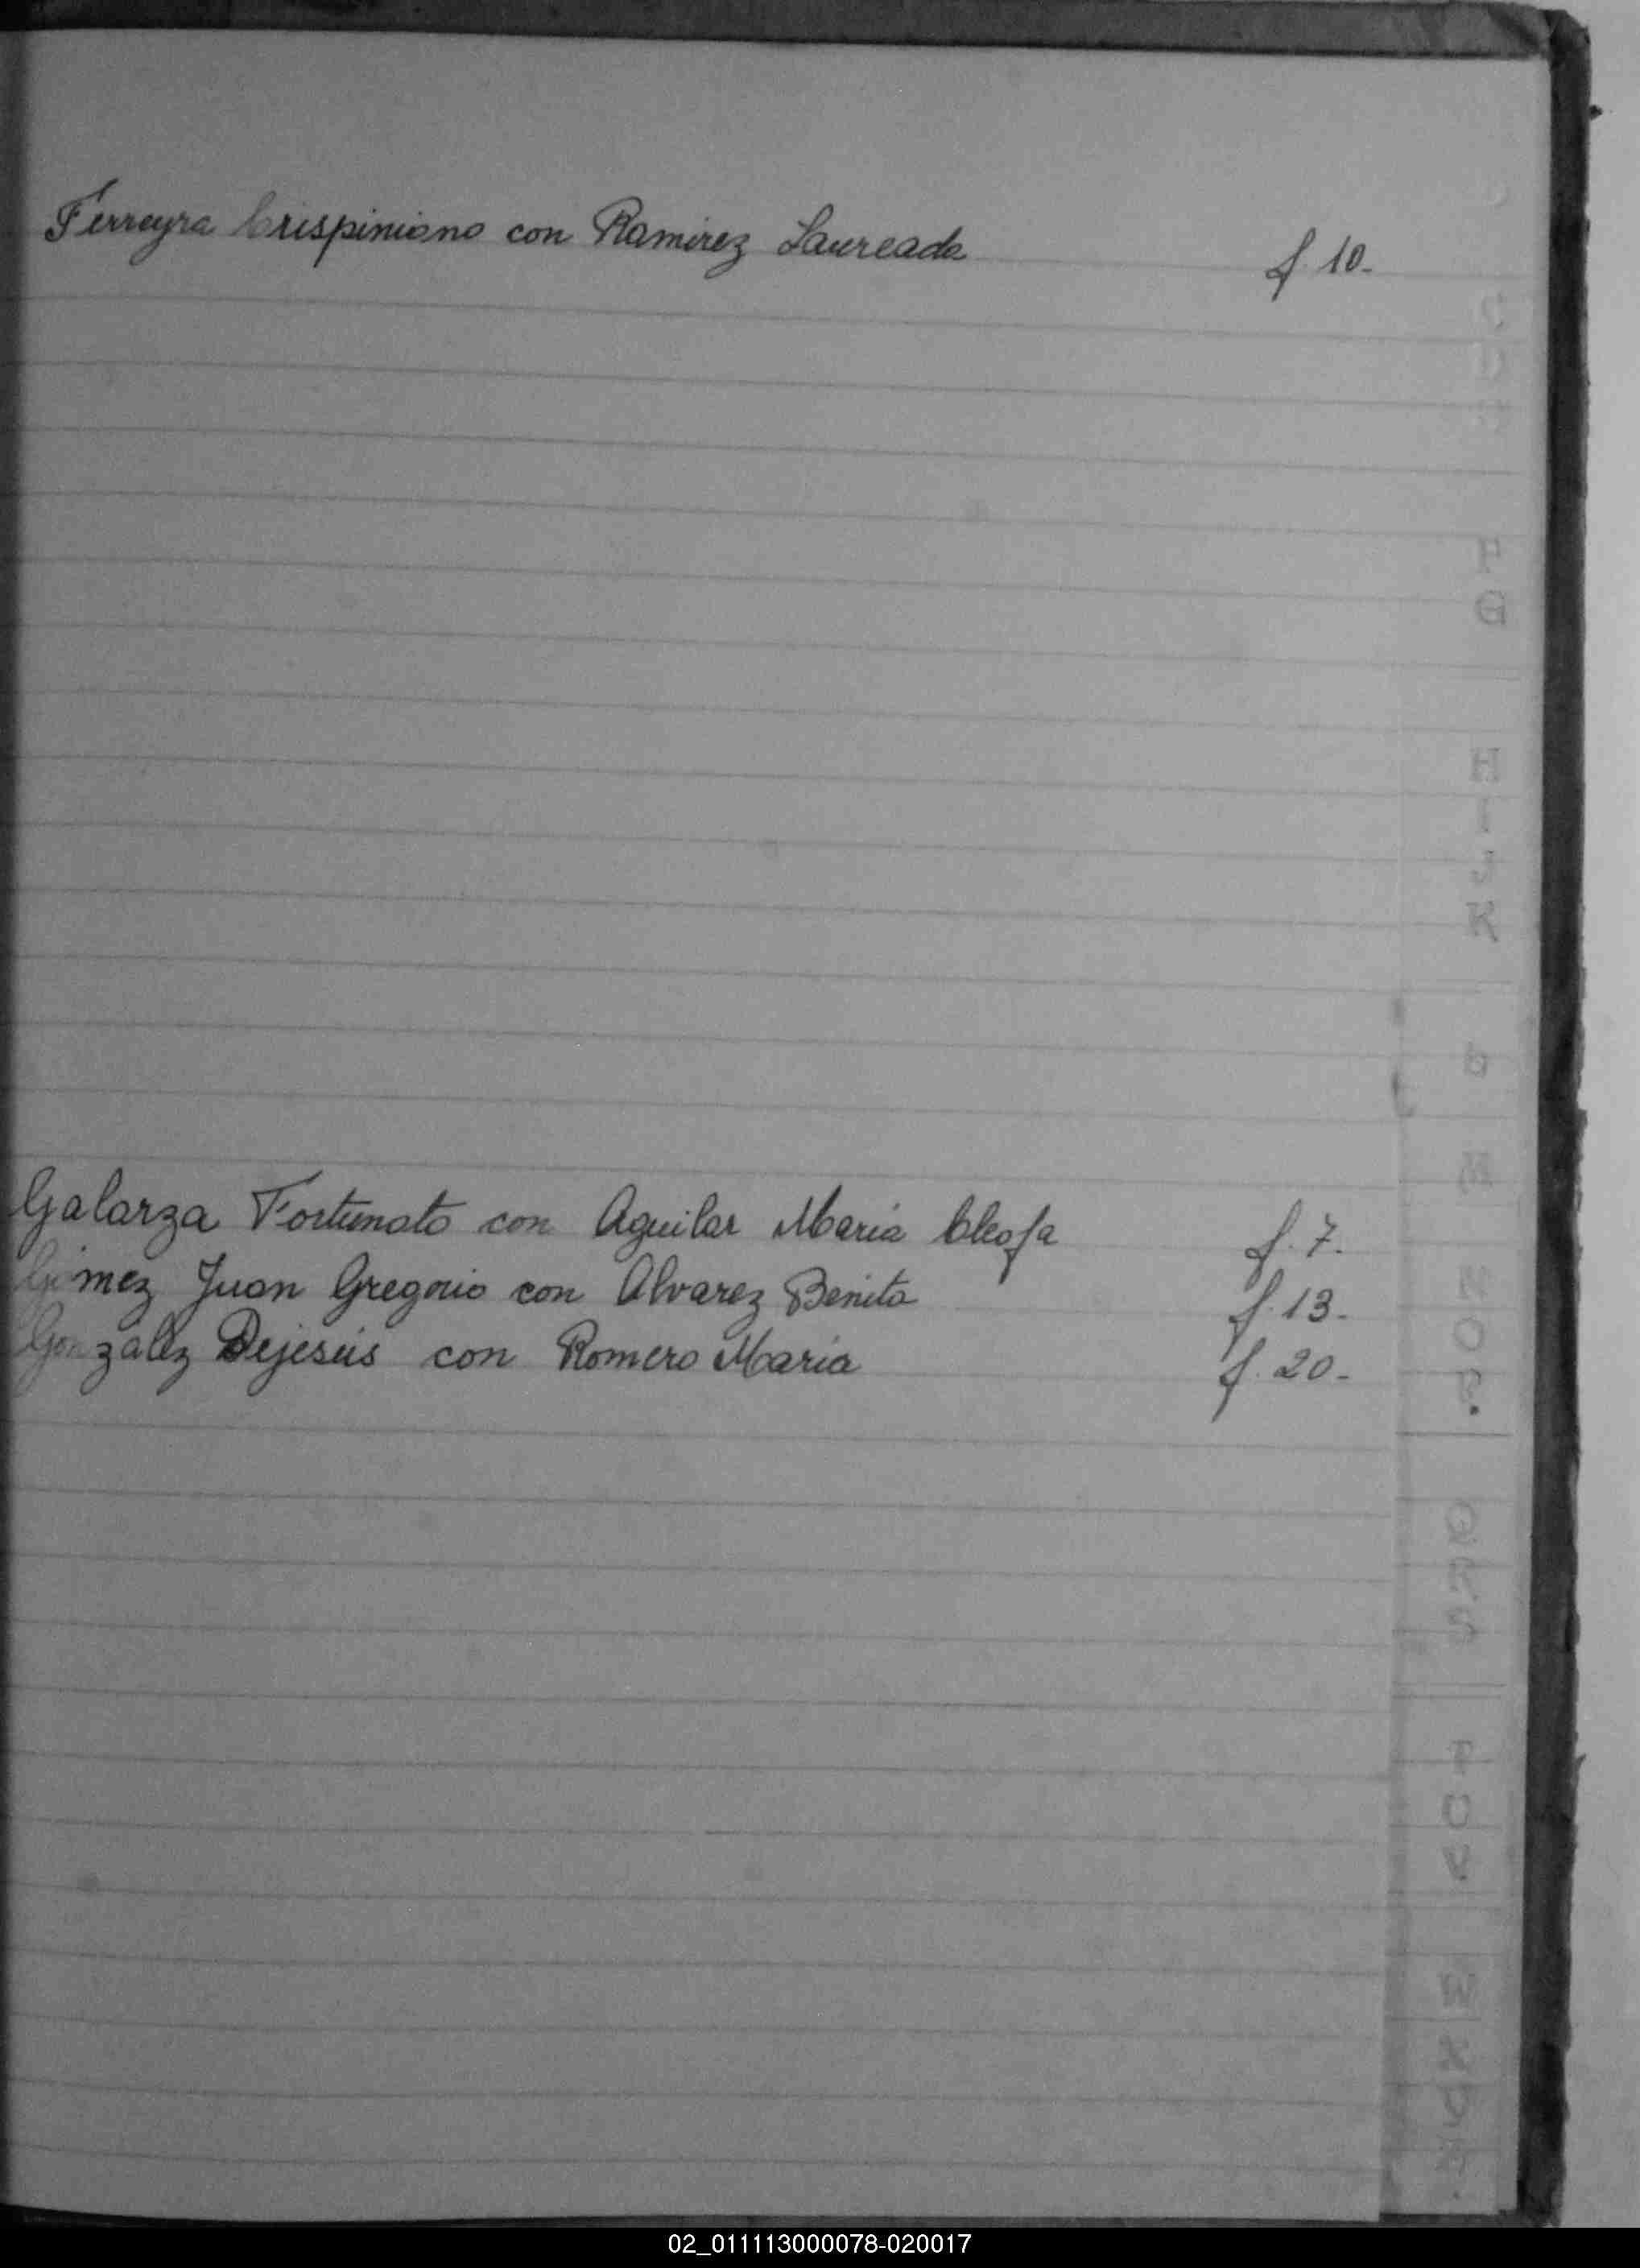 Ferreyra Crispiniano con Ramirez Laureada f. 10.-
Galarza Fortunato con Aguilar Maria Cleofa f. 7.-
Gómez Juan Gregorio con Alvarez Benita f. 13.-
Gonzalez Dejesús con Romero Maria f. 20.-
F
G
H
I
J
K
M
N
O
P.
Q
R
S
T
U
V
W
X
02_011113000078-020017